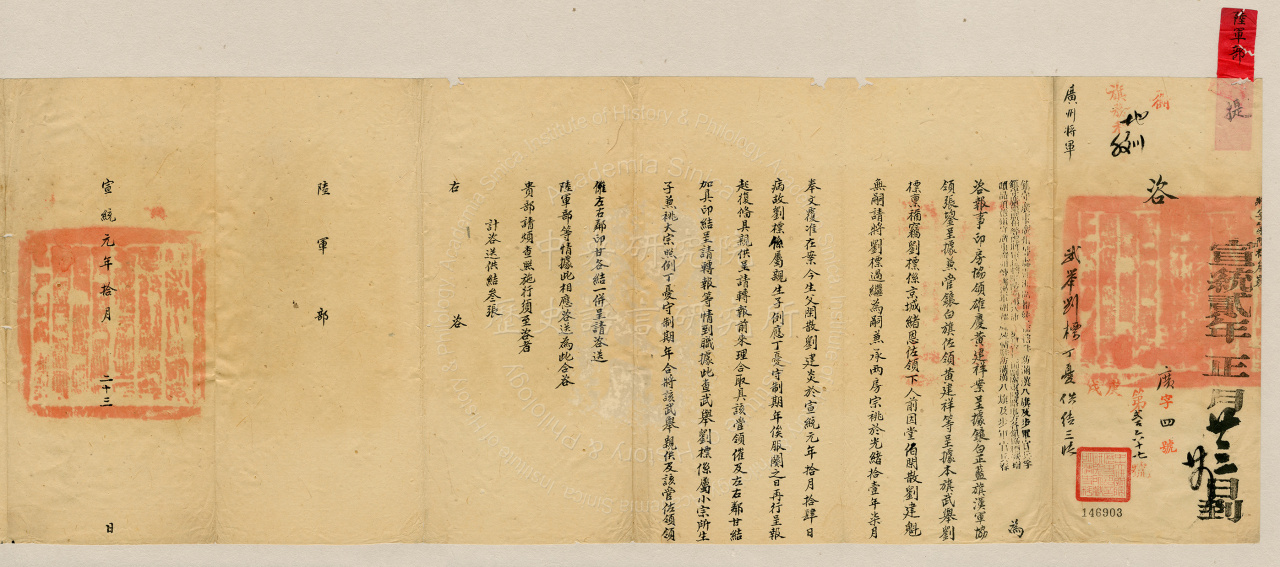 陸軍部
提
宣統貳年正月廿三日到
廣字四號
146903
咨
武舉劉標丁憂供結三張
廣州將軍
為
咨報事印房協領雄慶黃建祥案呈據鑲白正藍旗漢軍協
領張鑾呈據兼管鑲白旗佐領黃建祥等呈據本旗武舉劉
標稟稱竊劉標係京城緒恩佐領下人前因堂伯閑散劉建魁
無嗣請將劉標過繼為嗣兼承兩房宗祧於光緒拾壹年柒月
奉文覆准在案今生父閑散劉建炎於宣統元年拾月拾肆日
病故劉標係屬親生子例應丁憂守制期年俟服闋之日再行呈報
起復備具親供呈請轉報前來理合取具該管領催及左右鄰甘結
加具印結呈請轉報等情到職據此查武舉劉標係屬小宗所生
子兼祧大宗照例丁憂守制期年合將該武舉親供及該管佐領領
催左右鄰印甘各結一併呈請咨送
陸軍部等情據此相應咨送為此合咨
貴部請煩查照施行須至咨者
計咨送供結叁張
右咨
陸軍部
宣統元年拾月二十三日